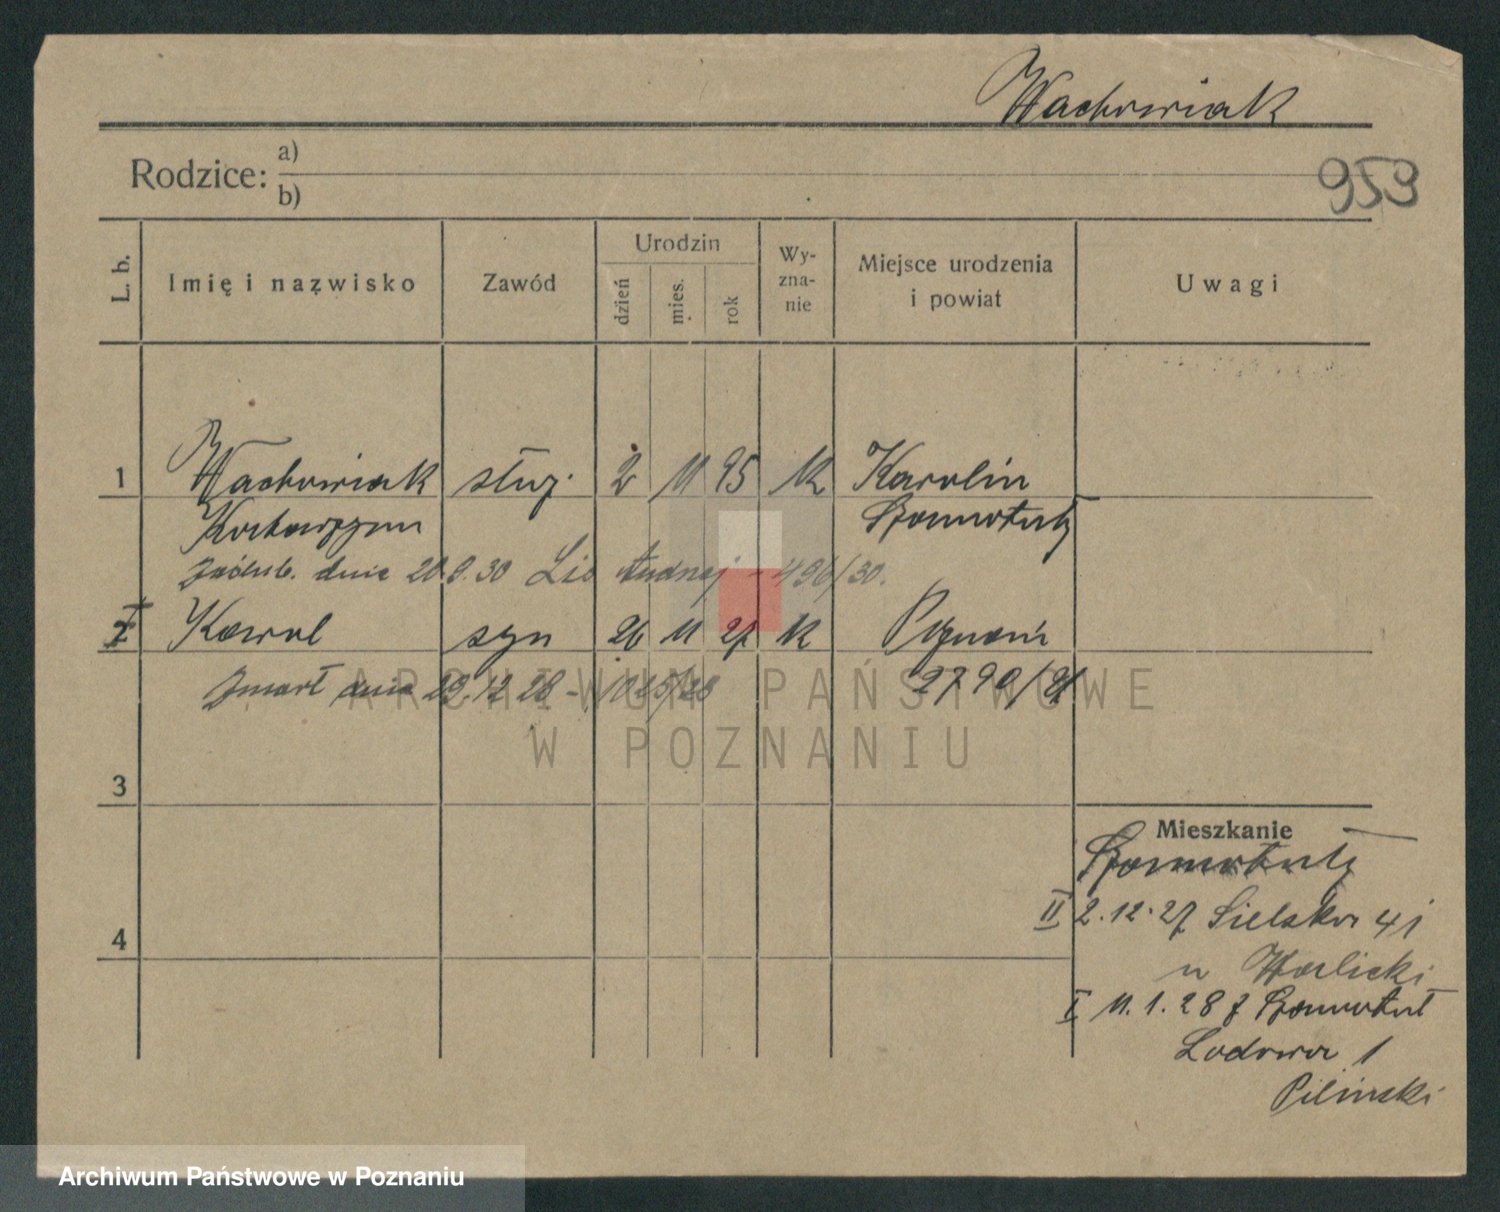 Wachowiak
Rodzice: a)
b)
953
L. b. Imię i nazwisko Zawód Urodzin dzień mies. rok Wy-zna-nie Miejsce urodzenia i powiat Uwagi
1 Wachowiak służ. 2 11 95 k Karolin
Katarzyna Szamotuły
zaślub. dnia 20.9.30 Lis Andrzej - 496/30.
I
2 Karol syn 26 11 27 k Poznań
zmarł dnia 29.12 28 - 1025/28 2790/
ARCHIWUM PAŃSTWOWE
W POZNANIU
3
Mieszkanie
Szamotuły
4
II 2.12.27 Sielska 41
u Warlicki
I 11.1.28 z Szamotuł
Lodowa 1
Piliński
Archiwum Państwowe w Poznaniu